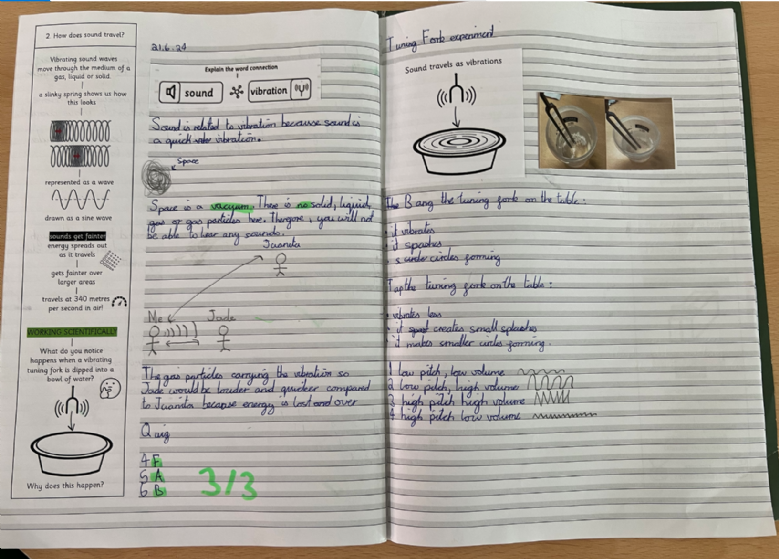 2. How does sound travel?
Vibrating sound waves
move through the medium of a
gas, liquid or solid.
a slinky spring shows us how
this looks
represented as a wave
drawn as a sine wave
sounds get fainter
energy spreads out
as it travels
gets fainter over
larger areas
travels at 340 metres
per second in air!
WORKING SCIENTIFICALLY
What do you notice
happens when a vibrating
tuning fork is dipped into a
bowl of water?
Why does this happen?
21.6.24
Explain the word connection
sound
vibration
Sound is related to vibration because sound is
a quick vibration.
Space
Space is a vacuum. There is no solid, liquid,
gas or gas particles here. Therefore, you will not
be able to hear any sounds.
Juanita
Me
Jade
The gas particles carrying the vibration so
Jade would be louder and quicker compared
to Juanita because energy is lost and over
Quiz
4 F
5 A
6 B
3/3
Tuning Fork experiment
Sound travels as vibrations
Bang the tuning fork on the table:
it vibrates
it splashes
circles forming
Tap the tuning fork on the table:
vibrates less
it creates small splashes
it makes smaller circles forming.
1 low pitch, low volume
2 low pitch, high volume
3 high pitch high volume
4 high pitch low volume